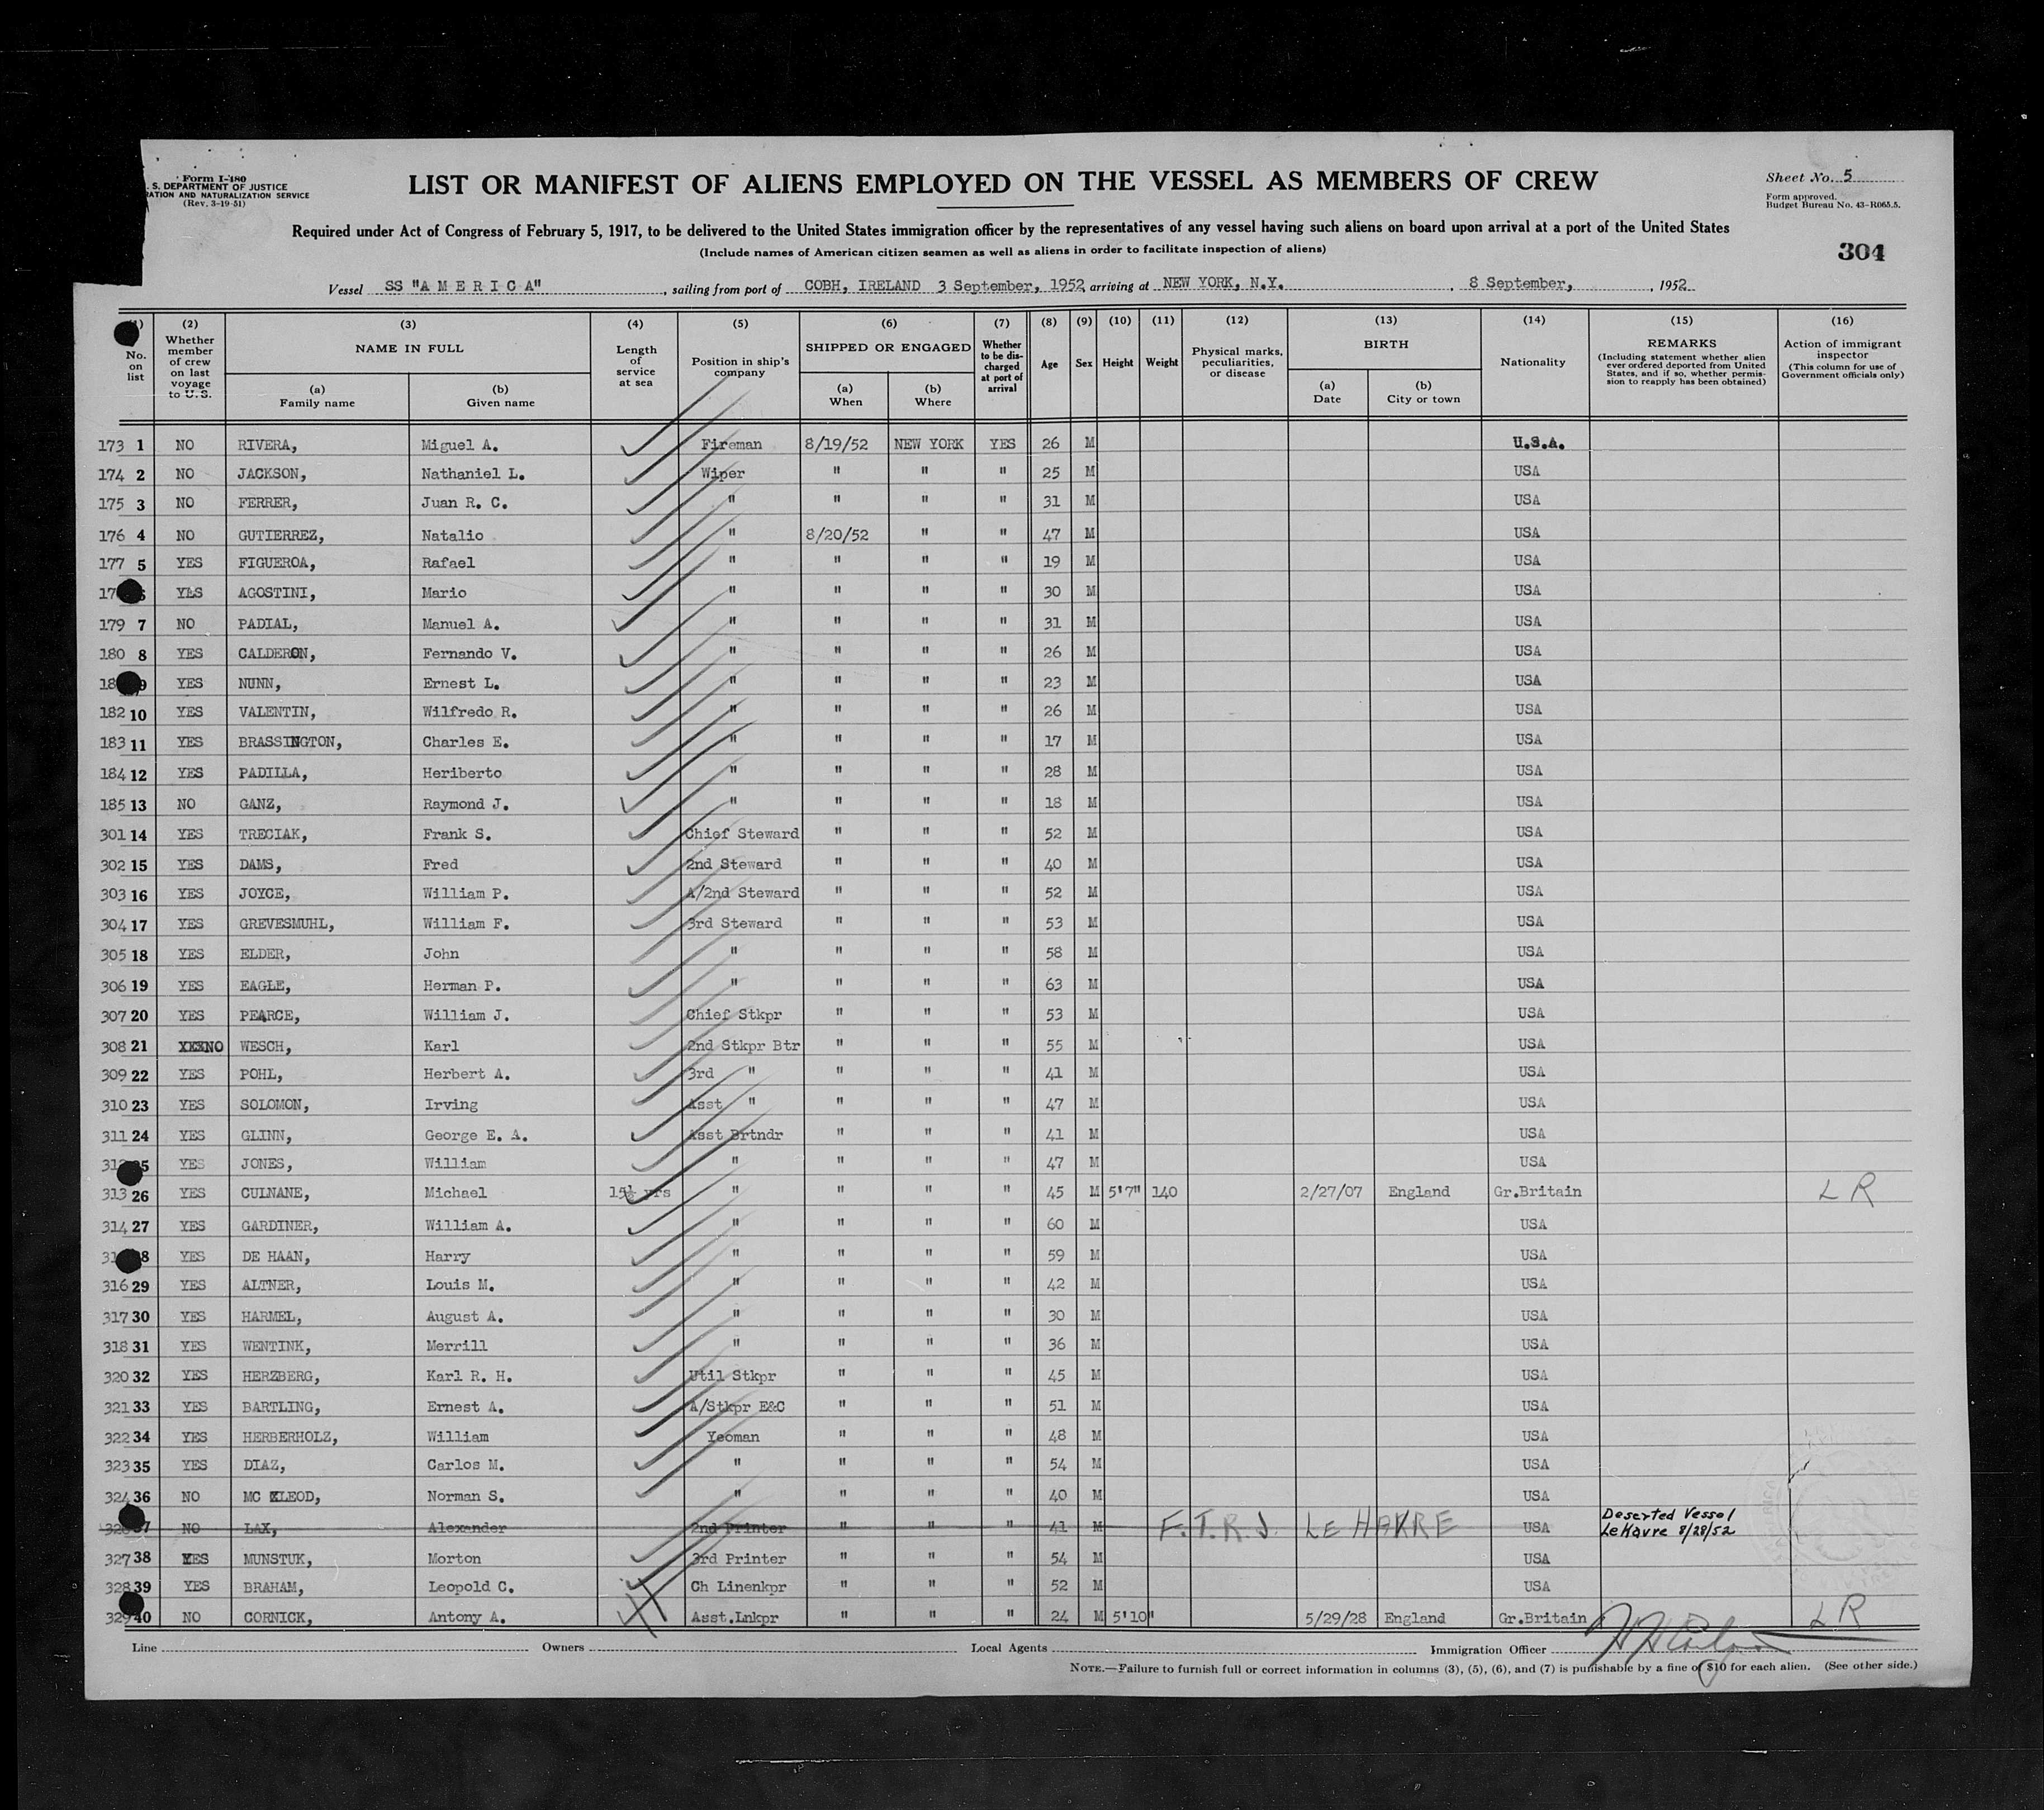 Form I-480
S. DEPARTMENT OF JUSTICE
ATION AND NATURALIZATION SERVICE
(Rev. 3-19-51)
LIST OR MANIFEST OF ALIENS EMPLOYED ON THE VESSEL AS MEMBERS OF CREW
Sheet No. 5
Form approved.
Budget Bureau No. 43-R065.5.
Required under Act of Congress of February 5, 1917, to be delivered to the United States immigration officer by the representatives of any vessel having such aliens on board upon arrival at a port of the United States
(Include names of American citizen seamen as well as aliens in order to facilitate inspection of aliens)
304
Vessel SS "A M E R I C A", sailing from port of COBH, IRELAND 3 September, 1952, arriving at NEW YORK, N.Y., 8 September, 1952
(1) No. on list (2) Whether member of crew on last voyage to U.S. (3) NAME IN FULL (a) Family name (b) Given name (4) Length of service at sea (5) Position in ship's company (6) SHIPPED OR ENGAGED (a) When (b) Where (7) Whether to be discharged at port of arrival (8) Age (9) Sex (10) Height (11) Weight (12) Physical marks, peculiarities, or disease (13) BIRTH (a) Date (b) City or town (14) Nationality (15) REMARKS (Including statement whether alien ever ordered deported from United States, and if so, whether permission to reapply has been obtained) (16) Action of immigrant inspector (This column for use of Government officials only)
173 1 NO RIVERA, Miguel A. Fireman 8/19/52 NEW YORK YES 26 M U.S.A.
174 2 NO JACKSON, Nathaniel L. Wiper " " " 25 M USA
175 3 NO FERRER, Juan R. C. " " " " 31 M USA
176 4 NO GUTIERREZ, Natalio " 8/20/52 " " 47 M USA
177 5 YES FIGUEROA, Rafael " " " " 19 M USA
17 6 YES AGOSTINI, Mario " " " " 30 M USA
179 7 NO PADIAL, Manuel A. " " " " 31 M USA
180 8 YES CALDERON, Fernando V. " " " " 26 M USA
18 9 YES NUNN, Ernest L. " " " " 23 M USA
182 10 YES VALENTIN, Wilfredo R. " " " " 26 M USA
183 11 YES BRASSINGTON, Charles E. " " " " 17 M USA
184 12 YES PADILLA, Heriberto " " " " 28 M USA
185 13 NO GANZ, Raymond J. " " " " 18 M USA
301 14 YES TRECIAK, Frank S. Chief Steward " " " 52 M USA
302 15 YES DAMS, Fred 2nd Steward " " " 40 M USA
303 16 YES JOYCE, William P. A/2nd Steward " " " 52 M USA
304 17 YES GREVESMUHL, William F. 3rd Steward " " " 53 M USA
305 18 YES ELDER, John " " " " 58 M USA
306 19 YES EAGLE, Herman P. " " " " 63 M USA
307 20 YES PEARCE, William J. Chief Stkpr " " " 53 M USA
308 21 NO WESCH, Karl 2nd Stkpr Btr " " " 55 M USA
309 22 YES POHL, Herbert A. 3rd " " " " 41 M USA
310 23 YES SOLOMON, Irving Asst " " " " 47 M USA
311 24 YES GLINN, George E. A. Asst Brtndr " " " 41 M USA
312 25 YES JONES, William " " " " 47 M USA
313 26 YES CULNANE, Michael 15½ yrs " " " " 45 M 5'7" 140 2/27/07 England Gr.Britain L R
314 27 YES GARDINER, William A. " " " " 60 M USA
31 8 YES DE HAAN, Harry " " " " 59 M USA
316 29 YES ALTNER, Louis M. " " " " 42 M USA
317 30 YES HARMEL, August A. " " " " 30 M USA
318 31 YES WENTINK, Merrill " " " " 36 M USA
320 32 YES HERZBERG, Karl R. H. Util Stkpr " " " 45 M USA
321 33 YES BARTLING, Ernest A. A/Stkpr E&C " " " 51 M USA
322 34 YES HERBERHOLZ, William Yeoman " " " 48 M USA
323 35 YES DIAZ, Carlos M. " " " " 54 M USA
324 36 NO MC LEOD, Norman S. " " " " 40 M USA
37 NO LAX, Alexander 2nd Printer " " " 41 M F.T.R.J. LE HAVRE USA Deserted Vessel Le Havre 8/28/52
327 38 YES MUNSTUK, Morton 3rd Printer " " " 54 M USA
328 39 YES BRAHAM, Leopold C. Ch Linenkpr " " " 52 M USA
329 40 NO CORNICK, Antony A. Asst.Lnkpr " " " 24 M 5'10" 5/29/28 England Gr.Britain L R
Line Owners Local Agents Immigration Officer
NOTE.—Failure to furnish full or correct information in columns (3), (5), (6), and (7) is punishable by a fine of $10 for each alien. (See other side.)